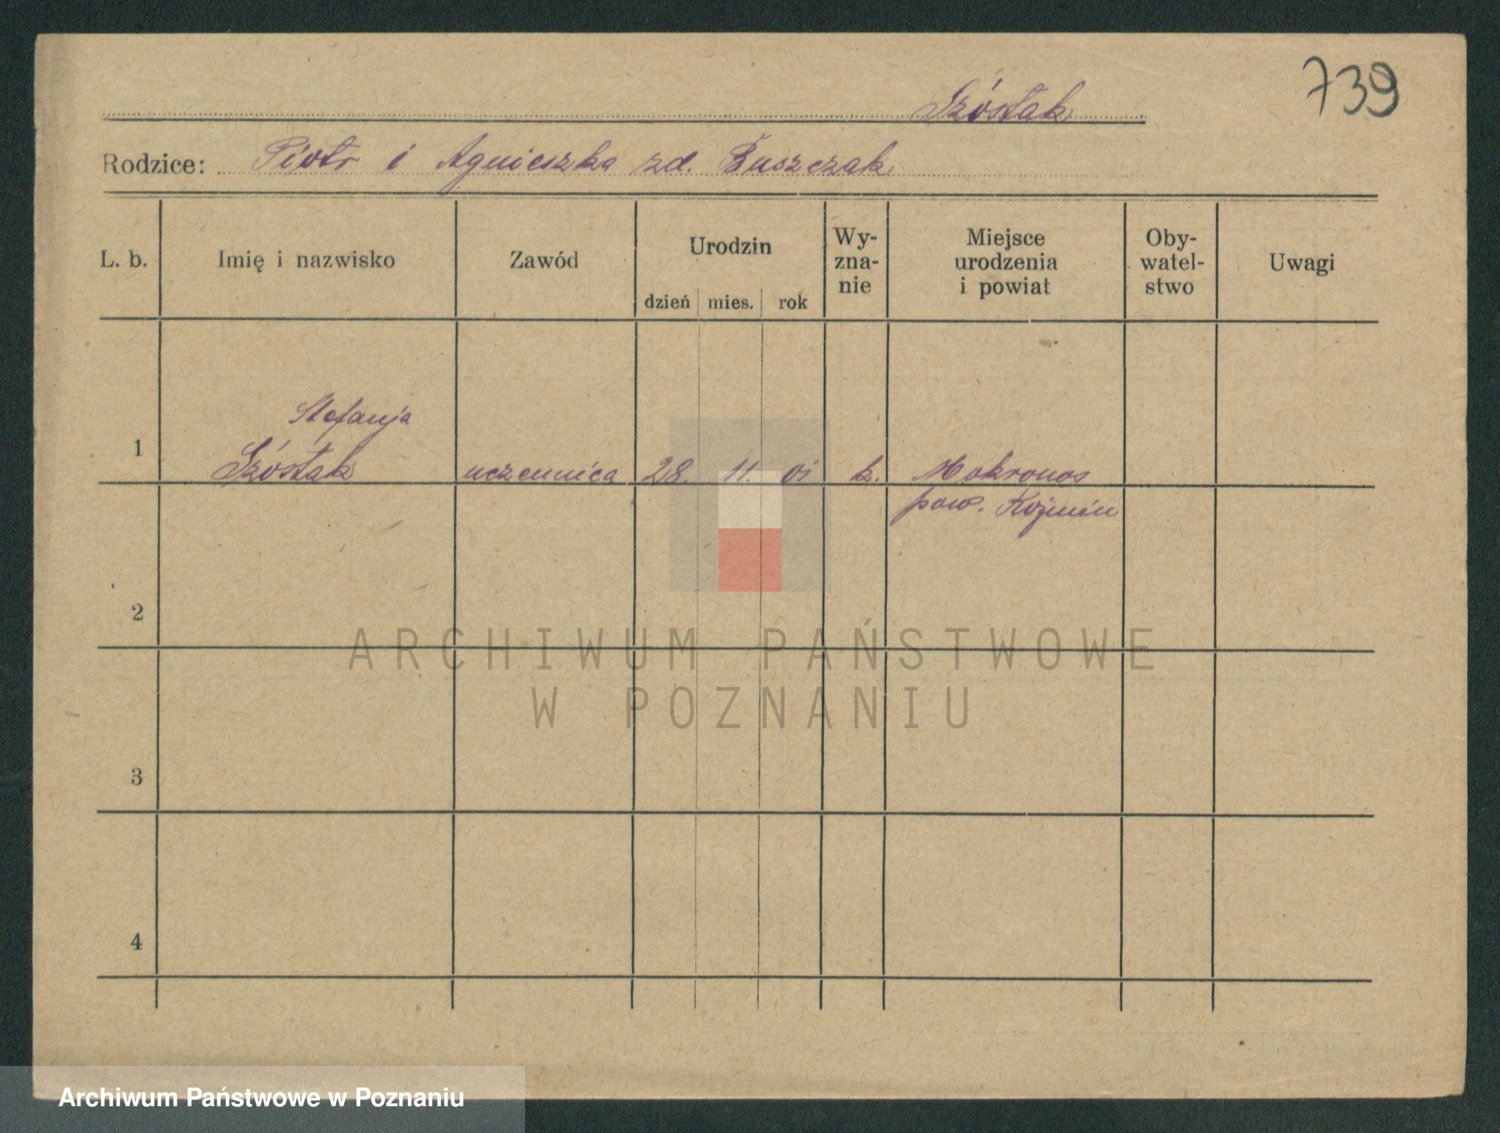 739
Szóstak
Rodzice: Piotr i Agnieszka zd. Łuszczak
L. b. Imię i nazwisko Zawód Urodzin dzień mies. rok Wy-zna-nie Miejsce urodzenia i powiat Oby-watel-stwo Uwagi
Stefanja
1 Szóstak uczennica 28. 11. 01 k. Mokronos
pow. Koźmin
2
ARCHIWUM PAŃSTWOWE
W POZNANIU
3
4
Archiwum Państwowe w Poznaniu